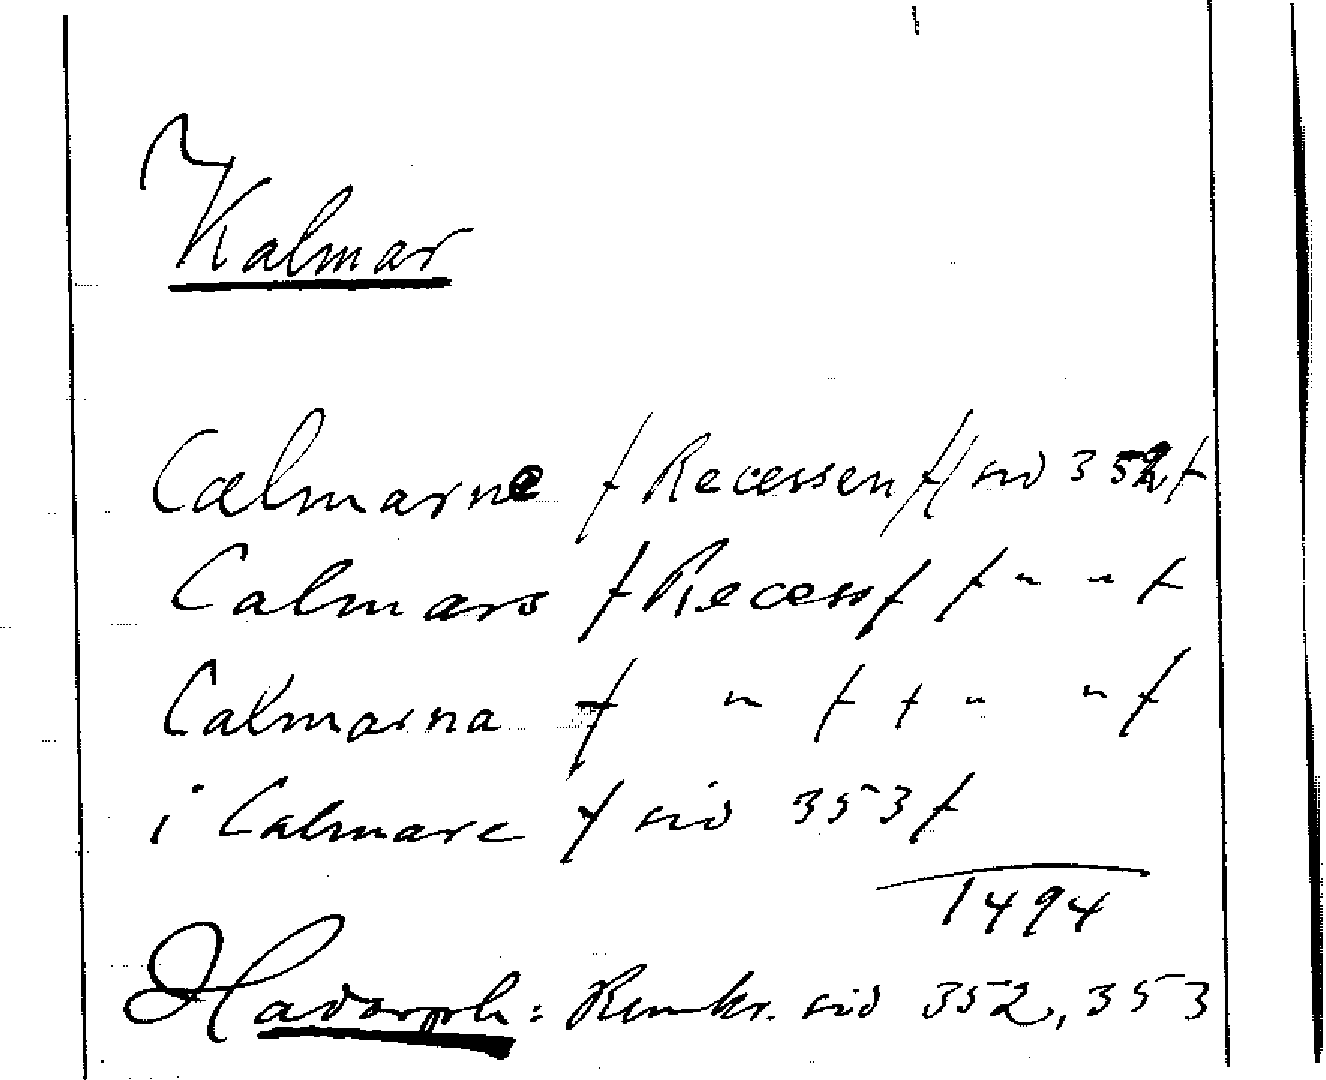 Kalmar
Calmarne / Recessen // sid 352 /
Calmars / Recess / / " " /
Calmarna / " / / " " /
i Calmare / sid 353 /
1494
Hadorph: Rimkr. sid 352, 353